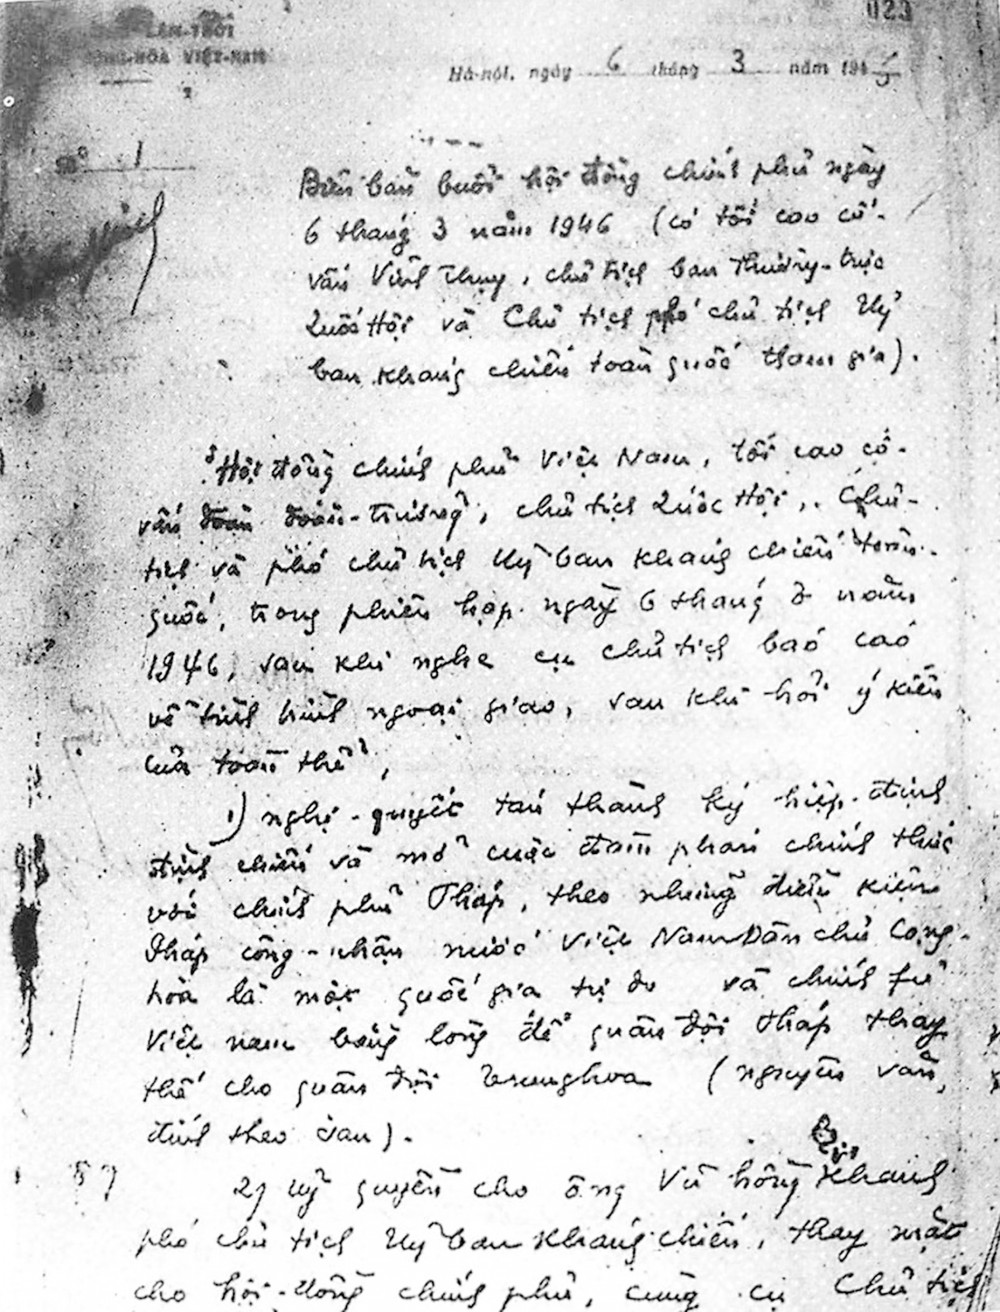 023
LÂM-THỜI
CỘNG-HÒA VIỆT-NAM
Hà-nội, ngày 6 tháng 3 năm 194
Số 1
Biên bản buổi hội đồng chính phủ ngày
6 tháng 3 năm 1946 (có tối cao cố-
vấn Vĩnh Thụy, chủ tịch ban thường-trực
Quốc Hội và Chủ tịch phó chủ tịch Uỷ
ban kháng chiến toàn quốc tham gia).
Hội đồng chính phủ Việt Nam, tối cao cố-
vấn đoàn đoàn-trưởng, chủ tịch Quốc Hội, Chủ-
tịch và phó chủ tịch Uỷ ban kháng chiến toàn-
quốc, trong phiên họp ngày 6 tháng 3 năm
1946, sau khi nghe cụ chủ tịch báo cáo
về tình hình ngoại giao, sau khi hỏi ý kiến
của toàn thể,
1) nghị-quyết tán thành ký hiệp-định
đình chiến và mở cuộc đàm phán chính thức
với chính phủ Pháp, theo những điều kiện
Pháp công-nhận nước Việt Nam Dân chủ Cộng-
hòa là một quốc gia tự do và chính fủ
Việt nam bằng lòng để quân đội Pháp thay
thế cho quân đội Trunghoa (nguyên văn
đính theo sau).
87
2) uỷ quyền cho ông Vũ hồng Khanh
phó chủ tịch Uỷ ban kháng chiến, thay mặt
cho hội-đồng chính phủ, cùng cụ Chủ tịch